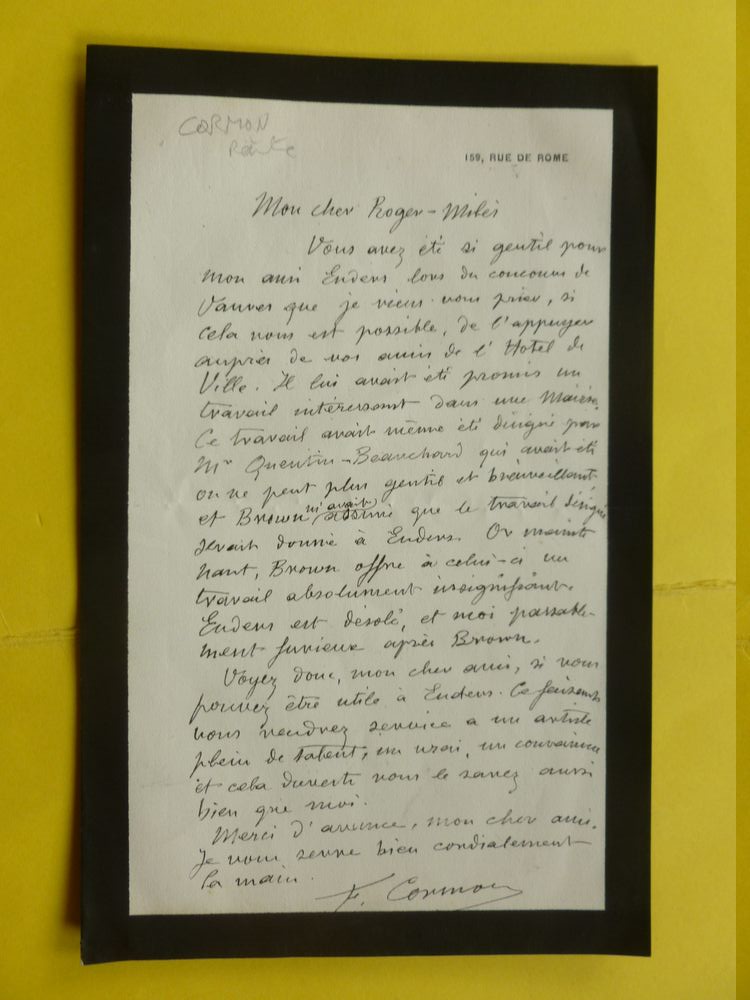 CORMON
Peintre
159, RUE DE ROME
Mon cher Roger-Milès
Vous avez été si gentil pour
mon ami Enders lors du concours de
Vanves que je viens vous prier, si
cela vous est possible, de l'appuyer
auprès de vos amis de l'Hotel de
Ville. Il lui avait été promis un
travail intéressant dans une Mairie.
Ce travail avait même été désigné par
Mr Quentin-Beauchard qui avait été
on ne peut plus gentil et bienveillant
et Brown m'avait assuré que le travail désigné
serait donné à Enders. Or mainte
nant, Brown offre à celui-ci un
travail absolument insignifiant.
Enders est désolé, et moi passable-
ment furieux après Brown.
Voyez donc, mon cher ami, si vous
pouvez être utile à Enders. Ce faisant
vous rendrez service a un artiste
plein de talent, un vrai, un convaincu
et cela vous le savez aussi
bien que moi.
Merci d'avance, mon cher ami.
Je vous serre bien cordialement
la main.
F. Cormon